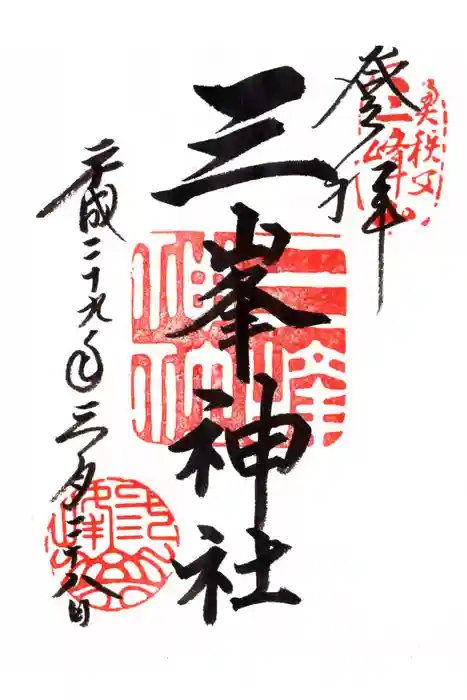 奥秩父
三峰山
登拝
三峯神社
平成二十九年三月二十八日